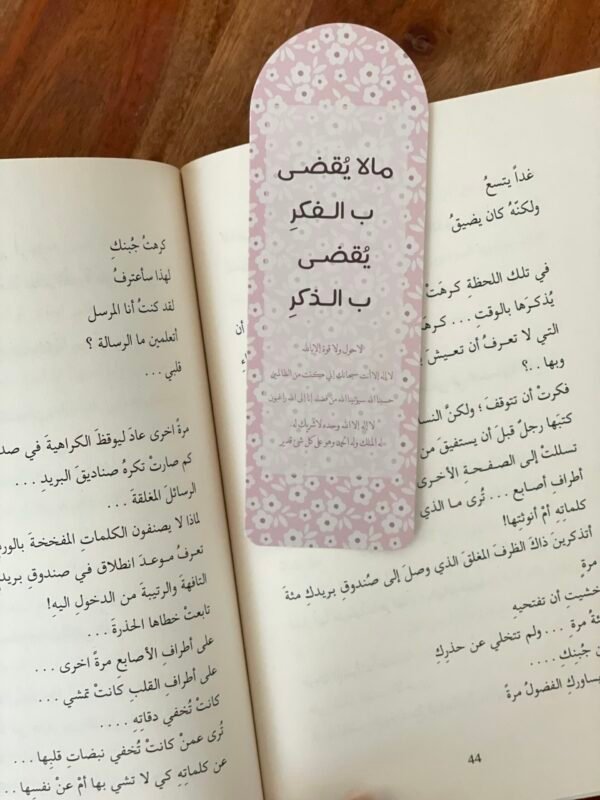 مالا يُقضى
ب الفكرِ
يُقضى
ب الذكرِ
لاحول ولا قوة إلا بالله
لا إله إلا أنت سبحانك إني كنت من الظالمين
حسبنا الله سيؤتينا الله من فضله إنا إلى الله راغبون
لا إله إلا الله وحده لا شريك له
له الملك وله الحمد وهو على كل شيء قدير
غداً يتسعُ
ولكنّهُ كان يضيقُ
في تلك اللحظةِ كرهَتْ
يُذكرَها بالوقتِ ... كرهَ
أن
التي لا تعرفُ أن تعيشَ
وبها ..؟
فكرتْ أن تتوقفَ ؛ ولكنَّ النسا
كتبَها رجلٌ قبلَ أن يستفيقَ من
تسللتْ إلى الصفحةِ الأخرى
أطرافِ أصابع ... تُرى ما الذي
كلماتِهِ أمْ أنوثتِها!
أتذكرينَ ذاكَ الظرفَ المغلقَ الذي وصلَ إلى صُندوقِ بريدكِ مئةَ
مرةٍ
خشيتِ أن تفتحيهِ
ئةُ مرةٍ ... ولم تتخلي عن حذركِ
ن جُبنِكِ ....
يساوركِ الفضولُ مرةً
44
كرهتُ جُبنكِ
لهذا سأعترفُ
لقد كنتُ أنا المرسل
أتعلمين ما الرسالة ؟
قلبي ...
مرةً اخرى عادَ ليوقظَ الكراهيةَ في صد
كم صارتْ تكرهُ صناديقَ البريدِ ...
الرسائلَ المغلقةَ ...
لماذا لا يصنفون الكلماتِ المفخخةَ بالور
تعرفُ موعدَ انطلاق في صندوقِ بريد
التافهةَ والرتيبةَ من الدخولِ اليهِ!
تابعتْ خطاها الحذرةَ ...
على أطرافِ الأصابعِ مرةً اخرى ...
على أطرافِ القلبِ كانتْ تمشي ...
كانتْ تُخفي دقاتِهِ ....
تُرى عمنْ كانتْ تُخفي نبضاتِ قلبِها ...
عن كلماتِهِ كي لا تشي بها أمْ عنْ نفسِها ...